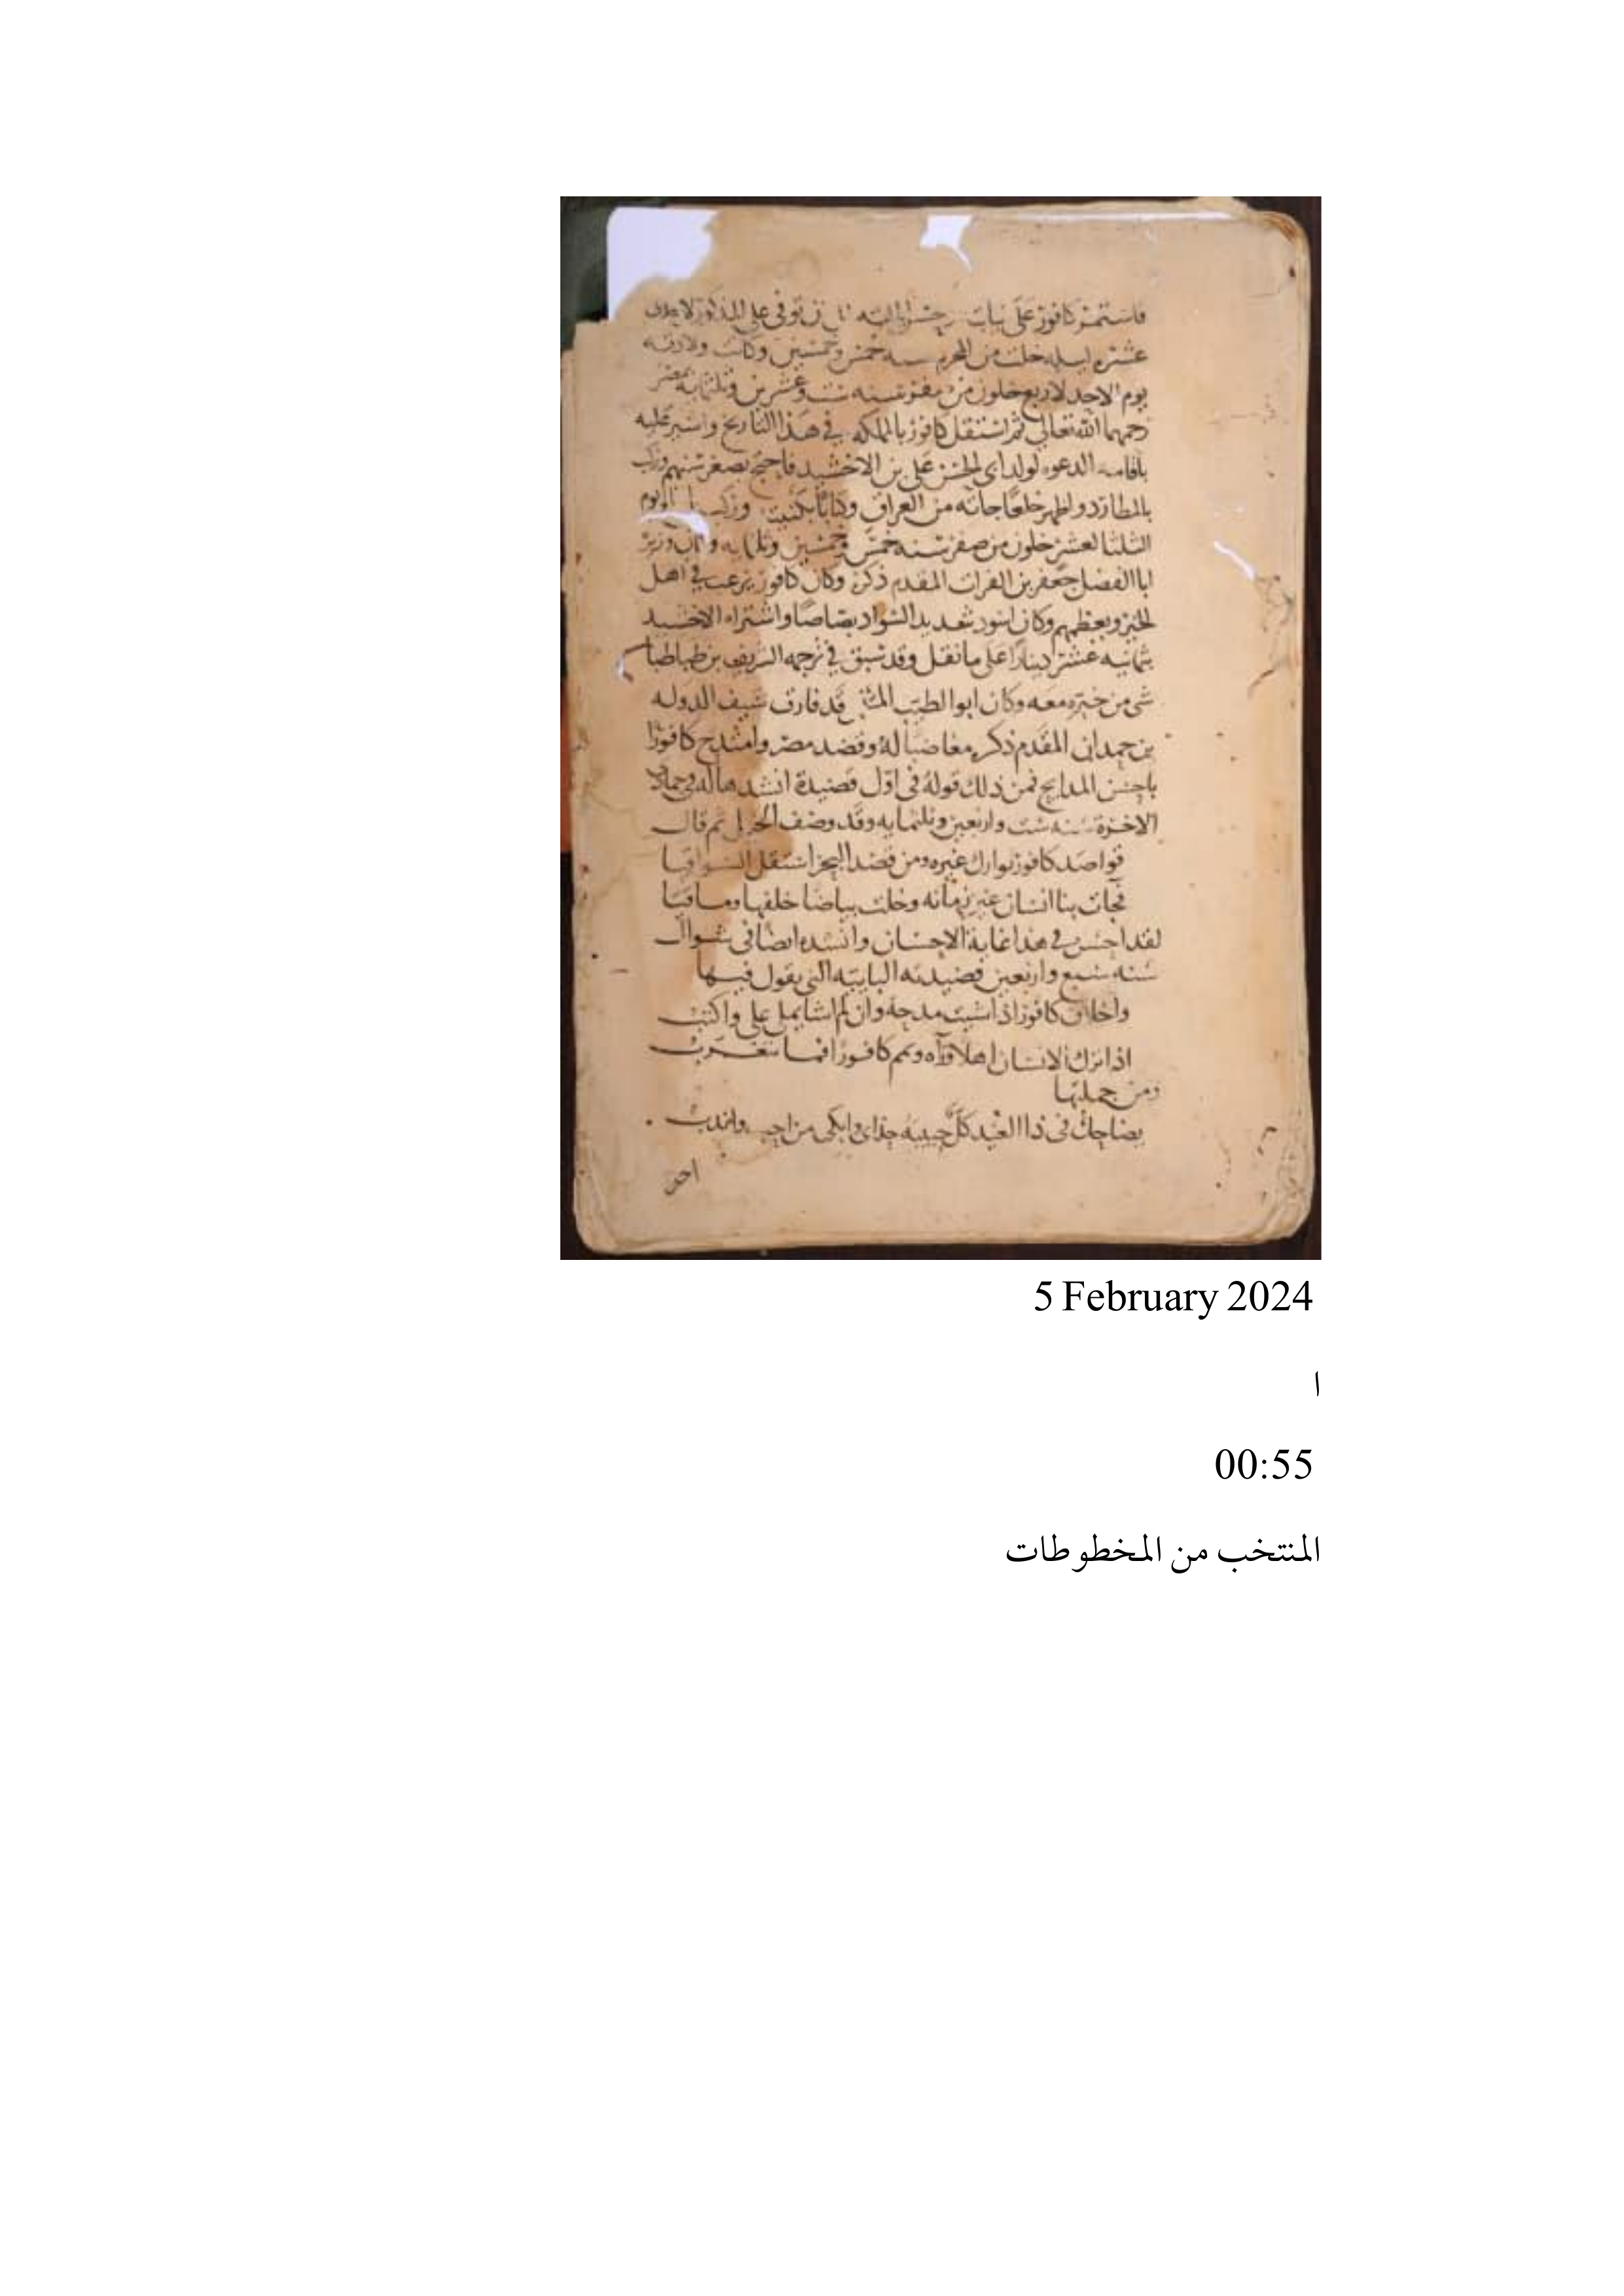 فاستمر كافور على نيابته إلى ان توفى على المذكور لاحدى
عشره ليله خلت من المحرم سنه خمس وخمسين وكانت ولادته
يوم الاحد لاربع خلون من صفر سنه ست وعشرين وثلثمايه بمصر
رحمهما الله تعالى ثم استقل كافور بالمملكه فى هذا التاريخ واشير عليه
باقامه الدعوه لولد ابى الحسن على بن الاخشيد فاحتج بصغر سنهم وركب
بالمطارد واظهر خلعا جاته من العراق وكتابا بكنيته وركب يوم
الثلثا لعشر خلون من صفر سنه خمس وخمسين وثلثمايه وكان وزيره
ابا الفضل جعفر بن الفرات المقدم ذكره وكان كافور يرغب فى اهل
الخير ويعظمهم وكان اسود شديد السواد بصاصا واشتراه الاخشيد
بثمانيه عشر دينارا على ما نقل وقد سبق فى ترجمه الشريف بن طباطبا
شى من خبره معه وكان ابو الطيب المتنبى قد فارق سيف الدوله
بن حمدان المقدم ذكره مغاضبا له وقصد مصر وامتدح كافورا
باحسن المدايح فمن ذلك قوله فى اول قصيدة انشدها له فى جمادى
الاخرة سنه ست واربعين وثلثمايه وقد وصف الخيل ثم قال
قواصد كافور توارك غيره ومن قصد البحر استقل السواقيا
فجات بنا انسان عين زمانه وخلت بياضا خلفها وماقيا
لقد احسن فى هذا غاية الاحسان وانشده ايضا فى شوال
سنه سبع واربعين قصيدته البابيه التى يقول فيها
واخلاق كافور اذا شيت مدحه وان لم اشا يملى على واكتب
اذا ترك الانسان اهلا وراه ويمم كافورا فما يتغرب
ومن جملتها
يضاحك فى ذا العيد كل حبيبه حذاى وابكى من احب واندب
احن
5 February 2024
ا
00:55
المنتخب من المخطوطات